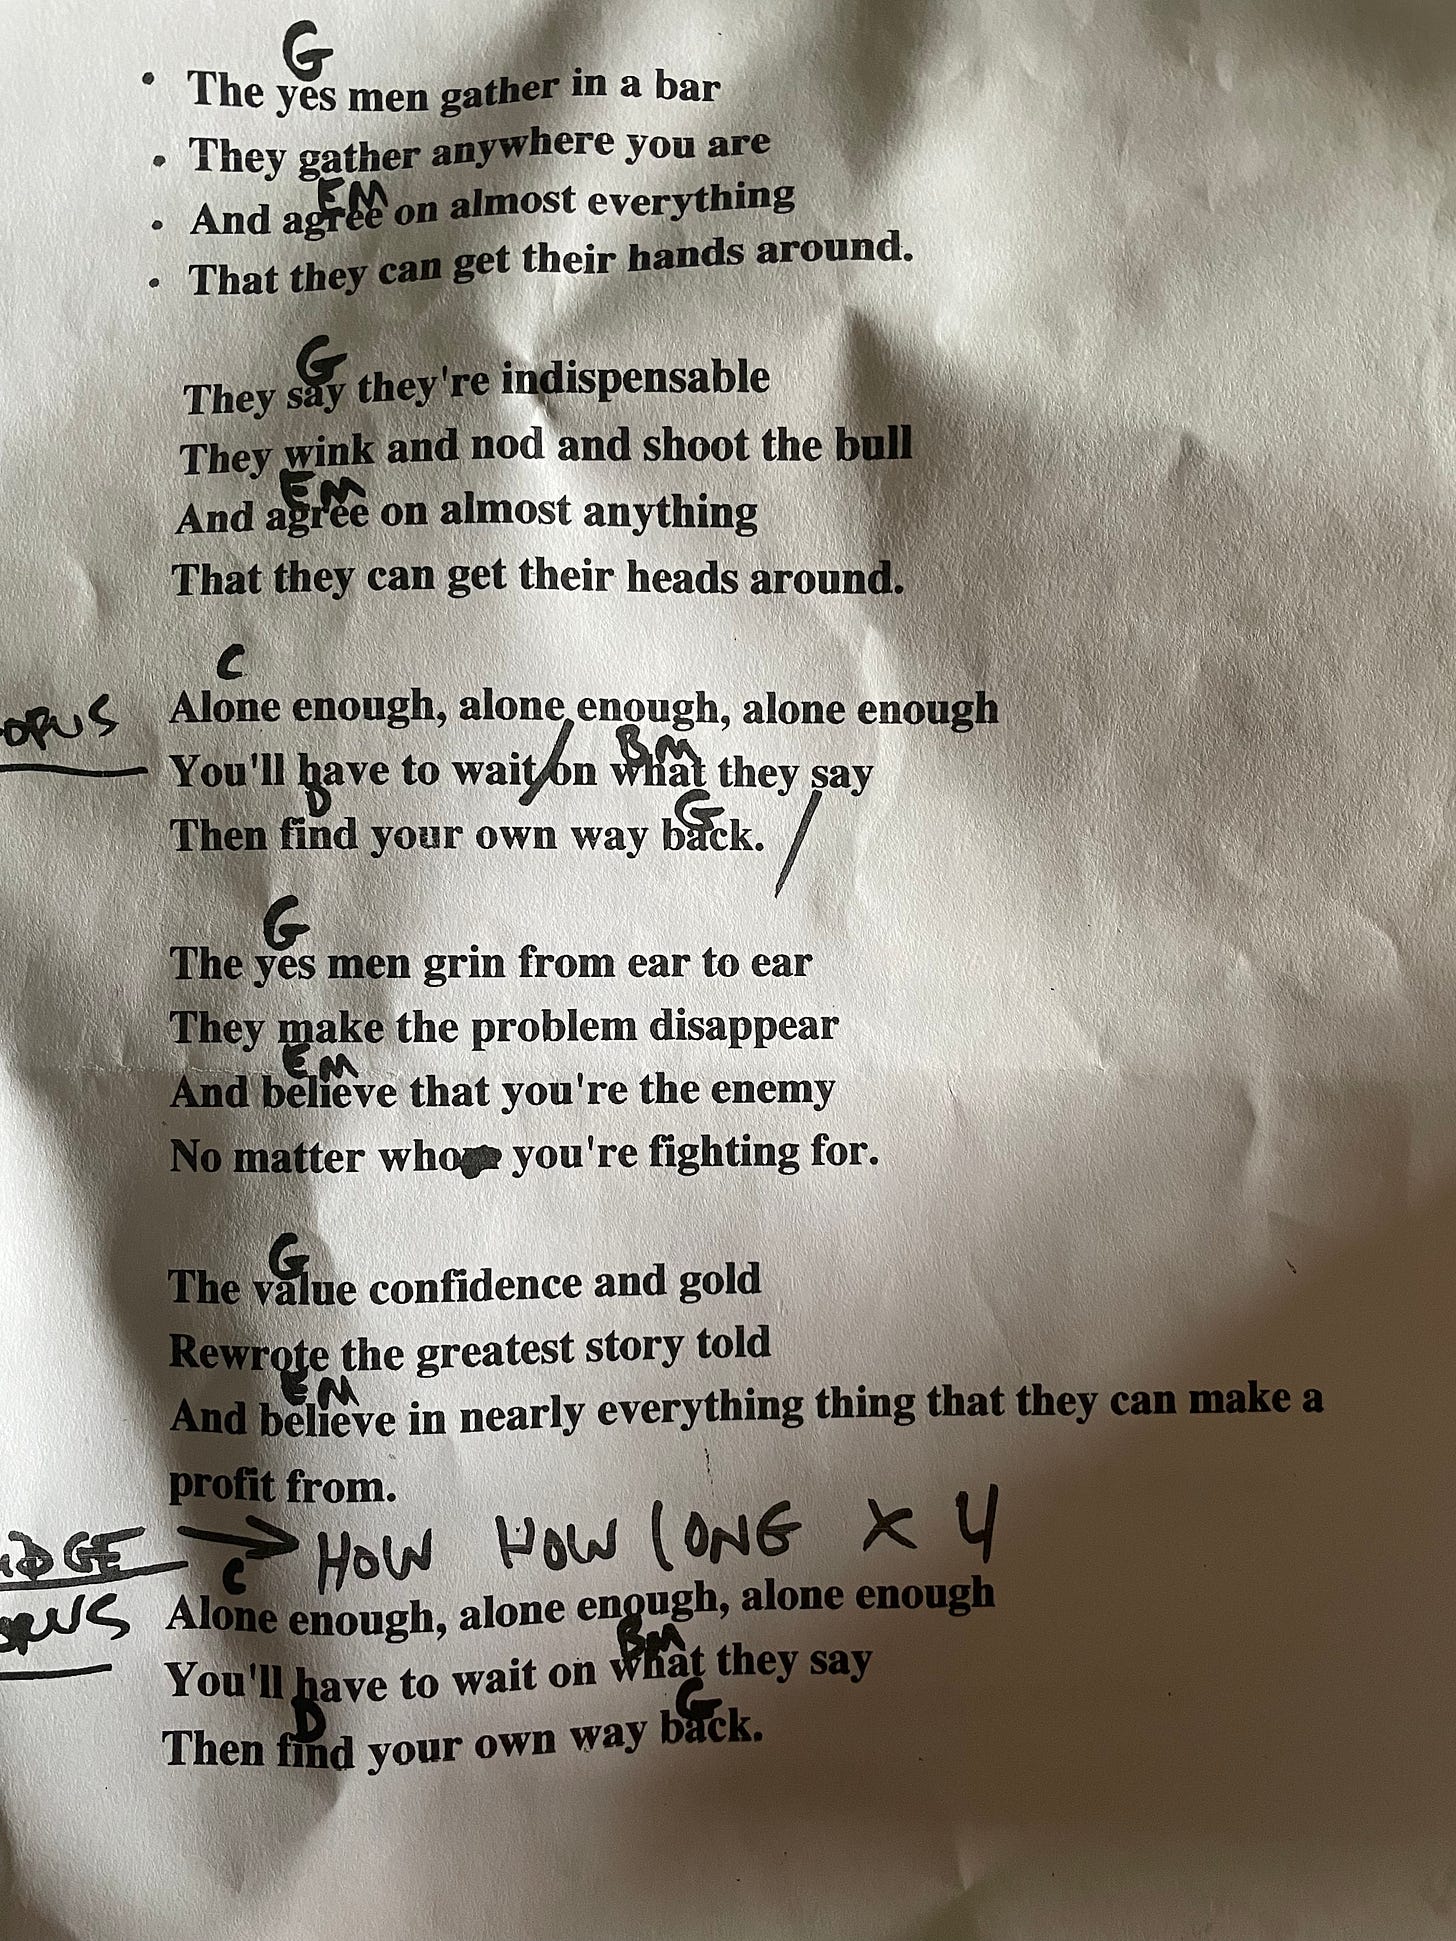 G
• The yes men gather in a bar
• They gather anywhere you are
EM
• And agree on almost everything
• That they can get their hands around.
G
They say they're indispensable
They wink and nod and shoot the bull
EM
And agree on almost anything
That they can get their heads around.
C
ORUS Alone enough, alone enough, alone enough
BM
You'll have to wait / on what they say
D G
Then find your own way back. /
G
The yes men grin from ear to ear
They make the problem disappear
EM
And believe that you're the enemy
No matter who you're fighting for.
G
The value confidence and gold
Rewrote the greatest story told
EM
And believe in nearly everything thing that they can make a
profit from.
IDGE → HOW HOW LONG X 4
C
ORUS Alone enough, alone enough, alone enough
BM
You'll have to wait on what they say
D G
Then find your own way back.